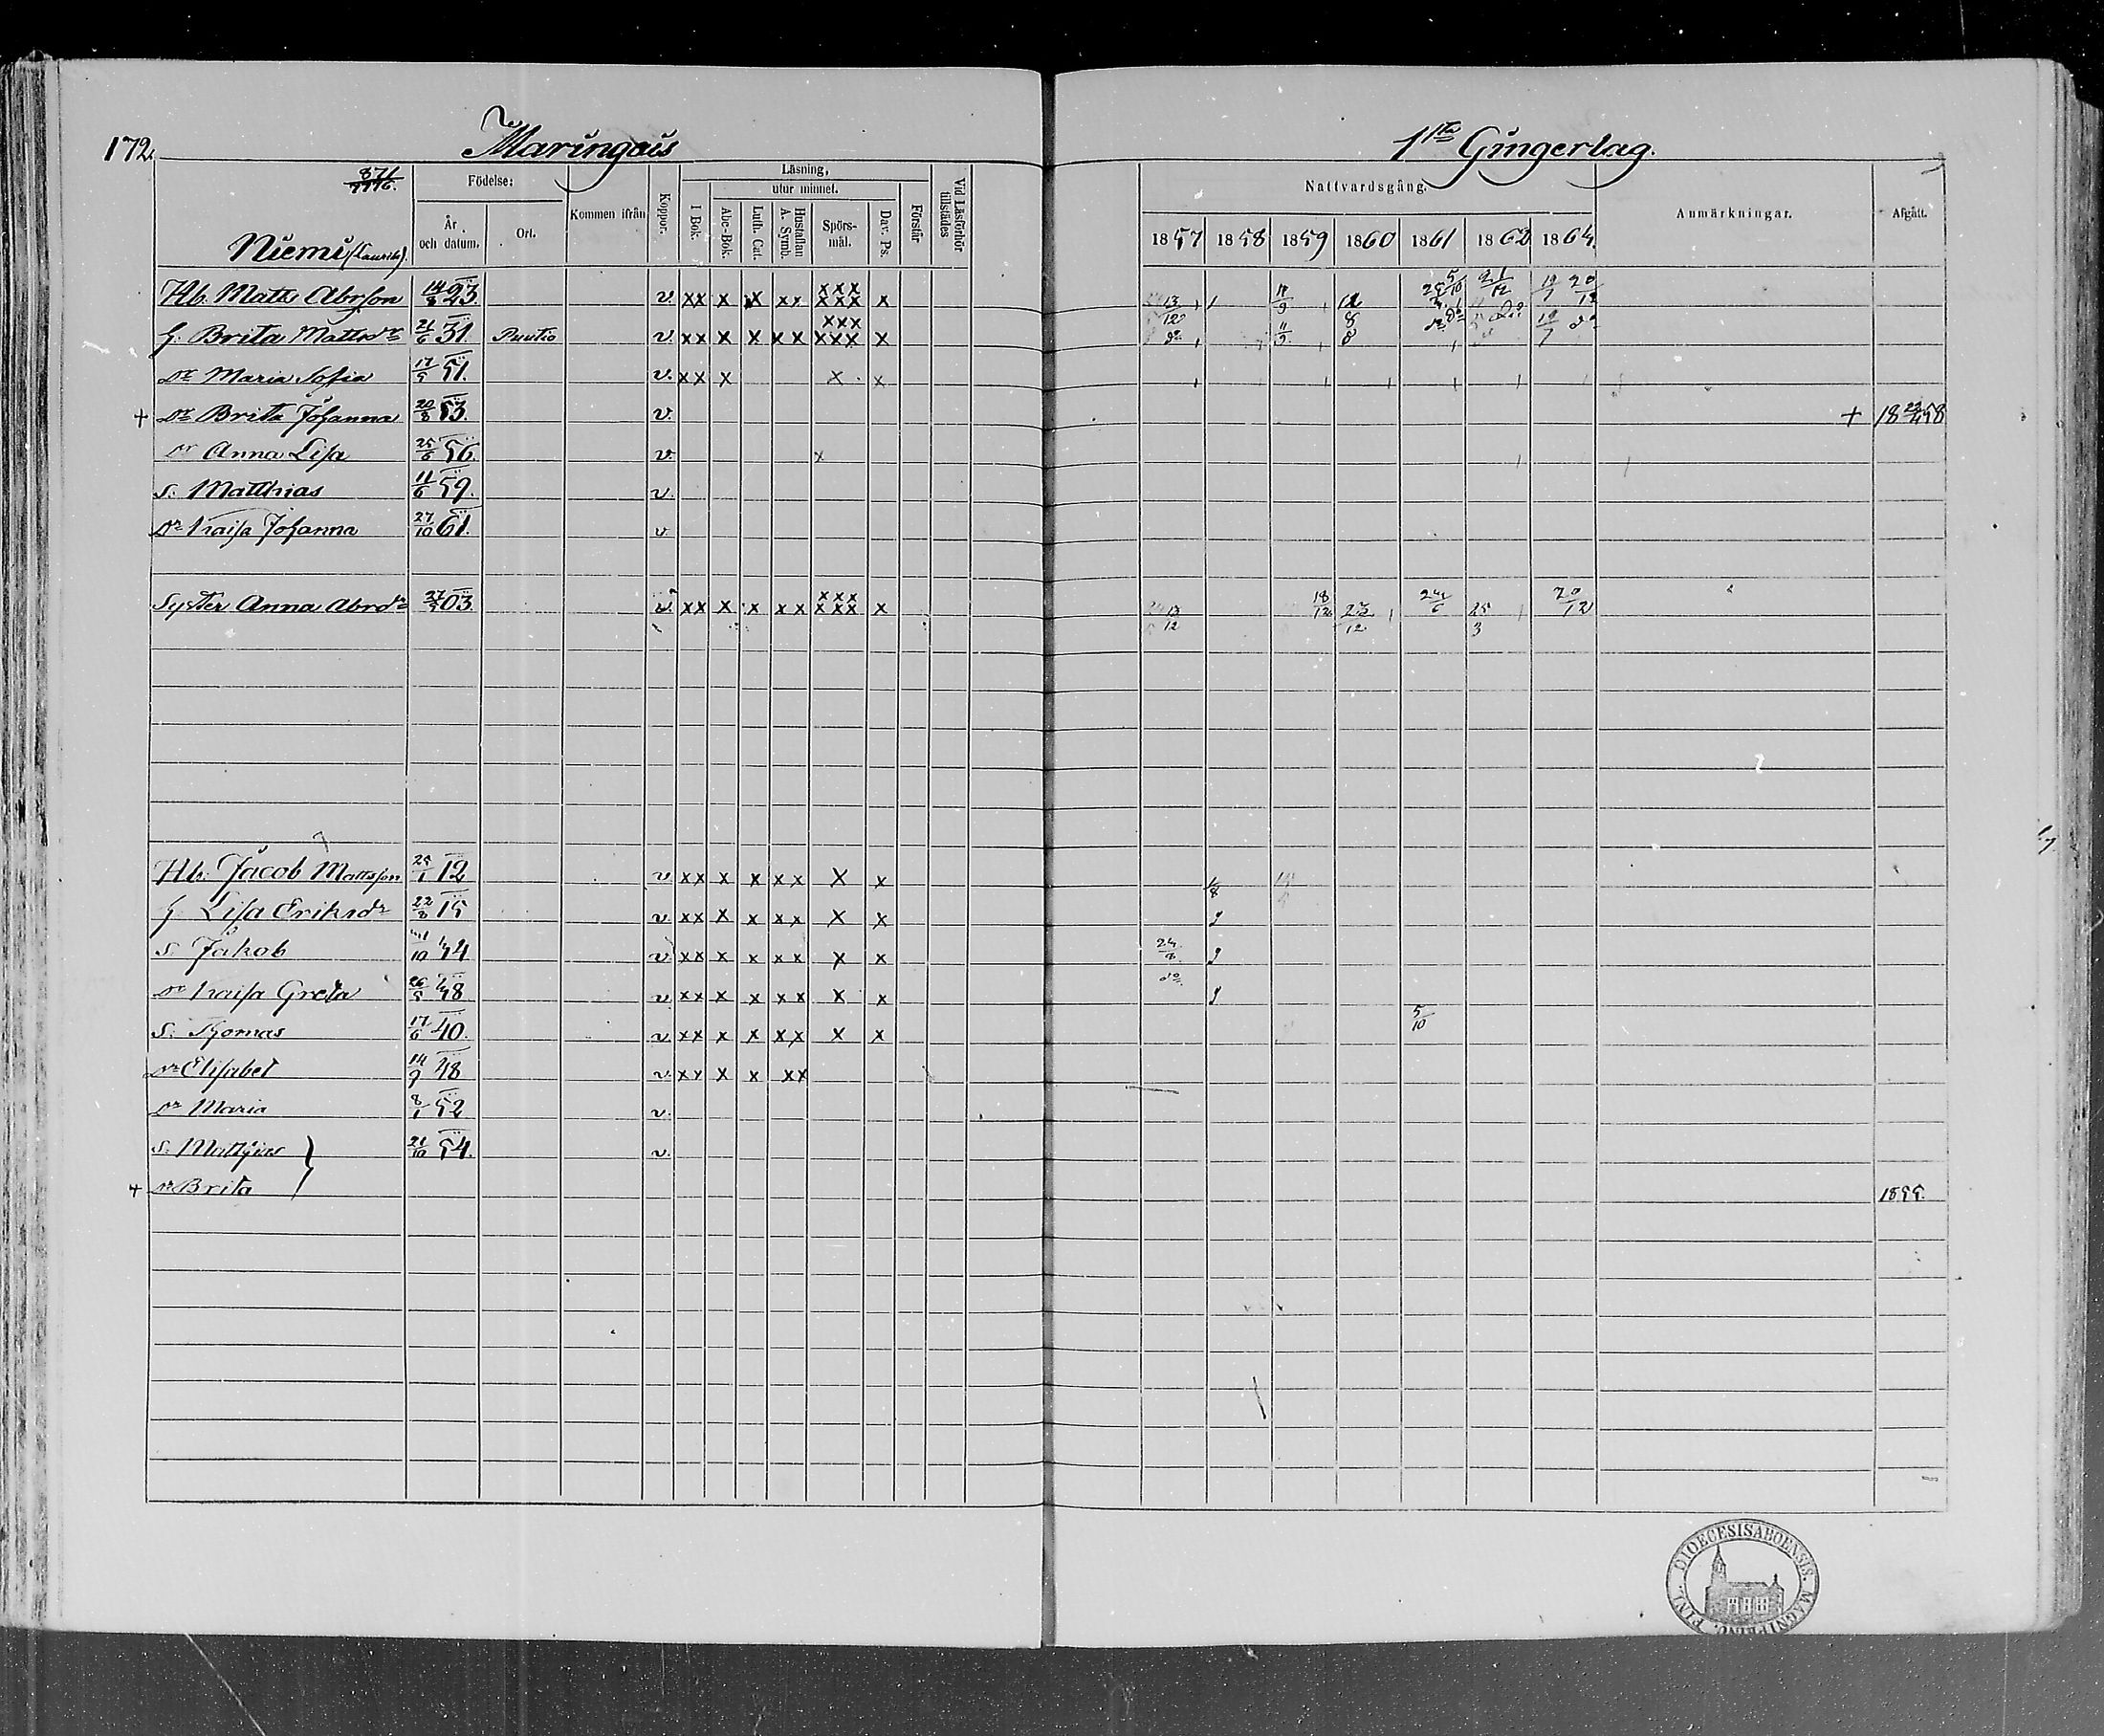 172. Maringais 1sta Gingerlag.
871/1116.
Födelse:
År och datum.
Ort.
Kommen ifrån
Koppor.
Läsning,
utur minnet.
I Bok.
Abc-Bok.
Luth. Cat.
Hustaflan A. Symb.
Spörs-mål.
Dav. Ps.
Förstår
Vid Läsförhör tillstädes
Nattvardsgång.
1857 1858 1859 1860 1861 1862 1864
Anmärkningar.
Afgått.
Niemi (Laurila).
Hb. Matts Abrsson v. xx x x xx xxx xxx x
H. Brita Mattsdr 21/6 31. Puutio v. xx x x xx xxx xxx x
Dr Maria Sofia 17/5 51. v. xx x x x
+ Dr Brita Johanna 20/8 53. v. + 18 58
Dr Anna Lisa 25/6 56. v. x
S. Matthias 11/6 59. v.
Dr Kaisa Johanna 27/10 61. v.
Syster Anna Abrdr 03. v. xx x x xx xxx xxx x 13/12 18/12 25/12 24/6 25/3 20/12
Hb. Jacob Mattsson 25/1 12 v. xx x x xx x x
H Lisa Eriksdr 22/8 15 v. xx x x xx x x
S. Jakob 44 v xx x x xx x x
Dr Kaisa Greta 26/5 48 v xx x x xx x x do
S. Thomas 17/6 40. v xx x x xx x x 5/10
Dr Elisabet 14/9 48 v. xx x x xx
Dr Maria 8/1 52 v.
S. Mathias } 21/10 54. v.
+ Dr Brita 1855.
FINL. DIOECESIS ABOENSIS. MAGNI PRINC.